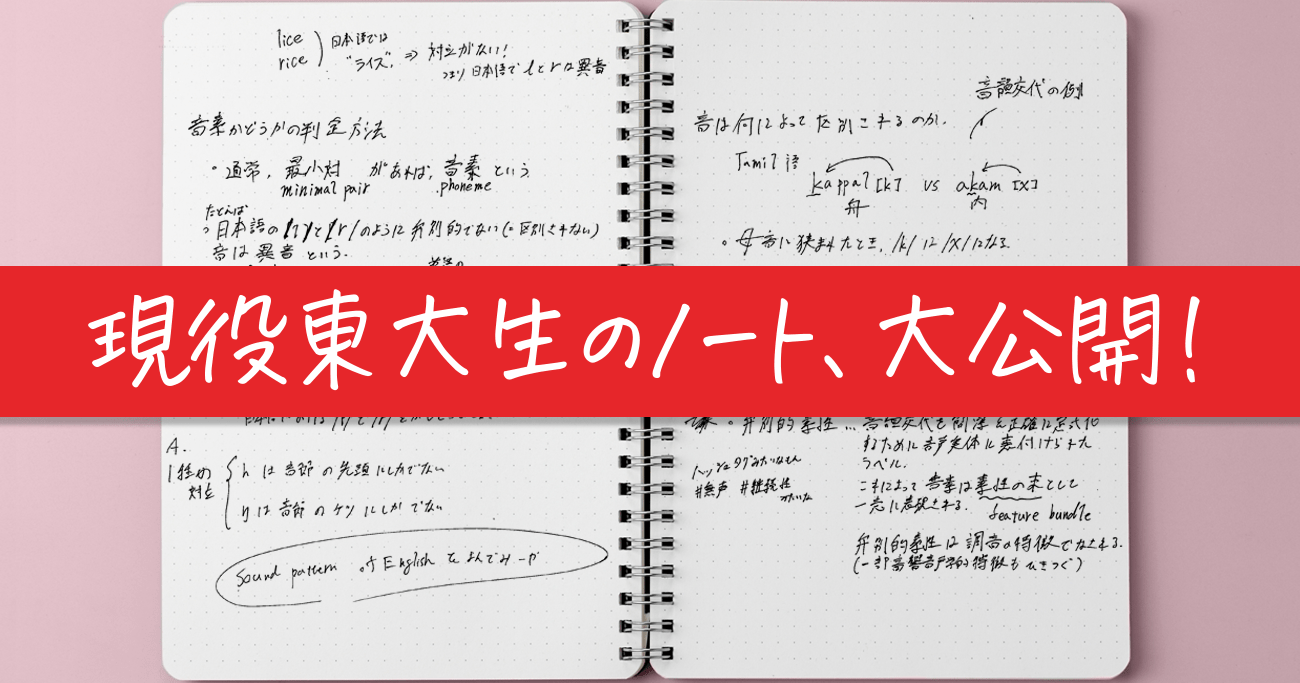 lice
rice
日本語では
"ライズ" ⇒ 対立がない！
つまり 日本語で lとrは異音
音素かどうかの判定方法
・通常、最小対 があれば、音素 という
minimal pair
phoneme
たとえば
日本語の /l/と/r/のように 弁別的でない(=区別されない)
音は異音という.
現役東大生のノート、大公開！
A.
1種の
対立
h は 音節 の先頭にしかでない
ŋ は 音節 のケツ にしか でない
Sound pattern of English をよんでみーや
音韻交代の例
音は何によって区別されるのか.
Tamil語
kappal [k] vs akam [x]
舟
内
・母音に挟まれたとき, /k/ は /x/になる
・弁別的素性… 音韻交代を簡潔&正確に定式化
するために音声実体に裏付けられた
ラベル.
ハッシュタグみたいなもん
#無声 #
みたいな
これによって 音素は素性の束として
一意に表現される.
feature bundle
弁別的素性 は 調音の特徴でなされる.
(一部音響音声学的特徴もひきつぐ)